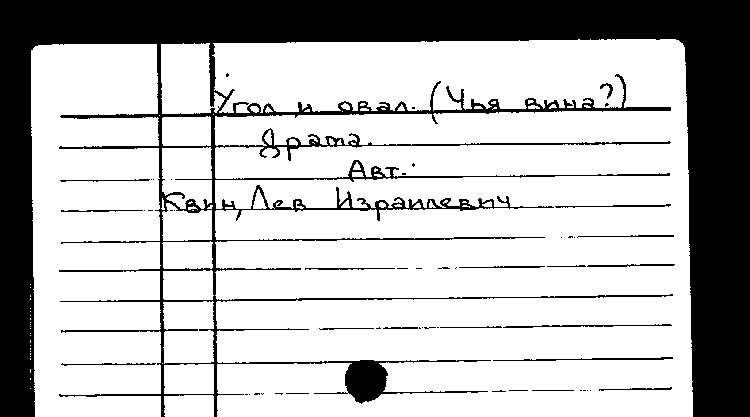 Угол и овал. (Чья вина?)
Драма.
Авт.
Квин, Лев Израилевич